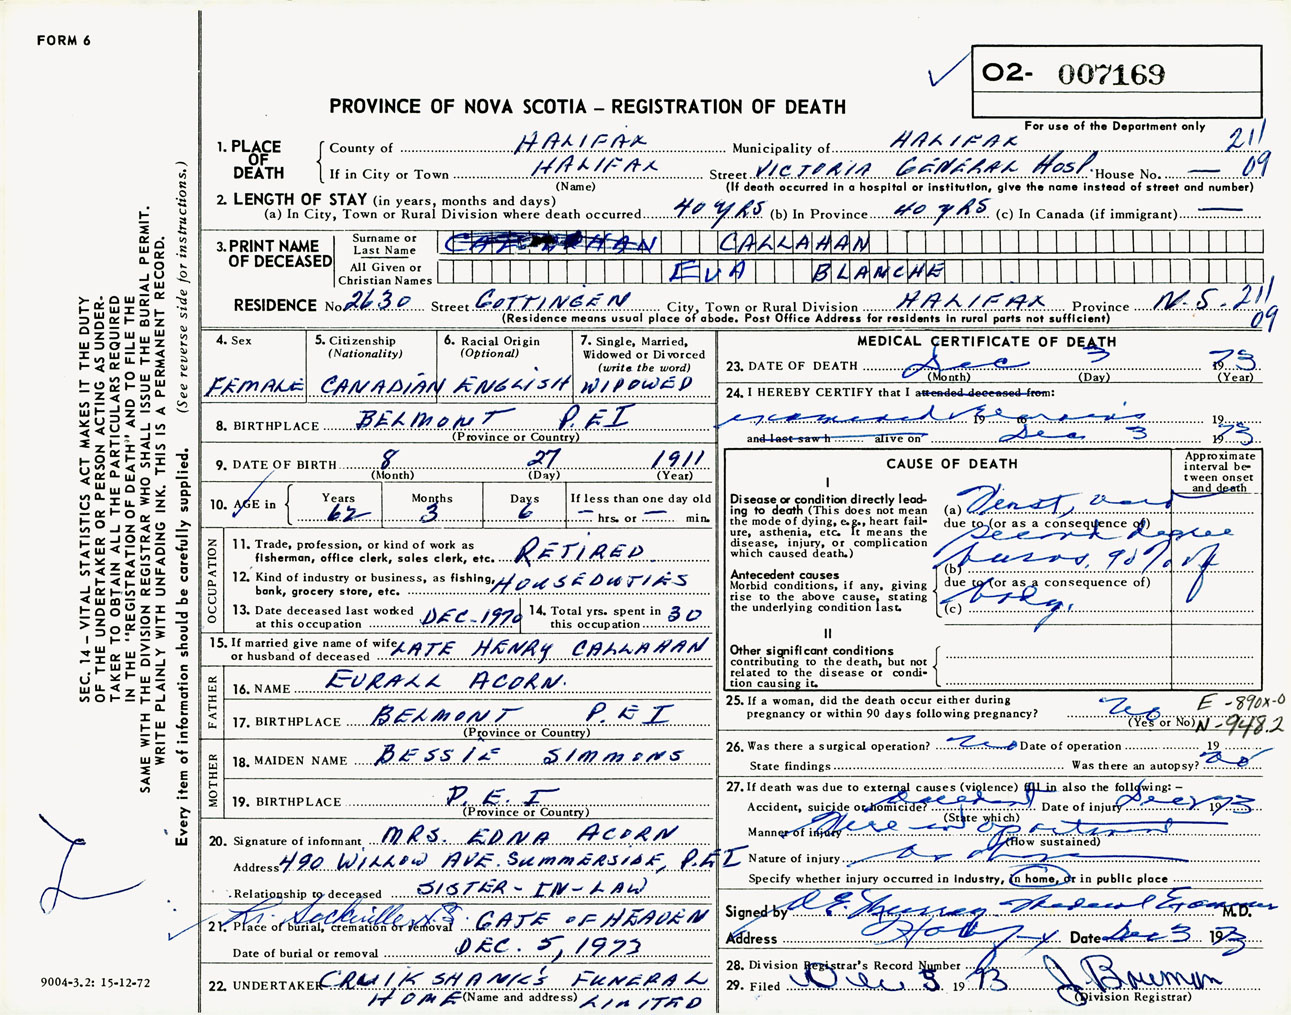 FORM 6
O2- 007169
PROVINCE OF NOVA SCOTIA – REGISTRATION OF DEATH
For use of the Department only
1. PLACE OF DEATH
County of HALIFAX Municipality of HALIFAX 211
If in City or Town HALIFAX Street VICTORIA GENERAL HOSP. House No. — 09
(Name) (If death occurred in a hospital or institution, give the name instead of street and number)
2. LENGTH OF STAY (in years, months and days)
(a) In City, Town or Rural Division where death occurred 40 YRS (b) In Province 40 YRS (c) In Canada (if immigrant) —
3. PRINT NAME OF DECEASED
Surname or Last Name CALLAHAN
All Given or Christian Names EVA BLANCHE
RESIDENCE No. 2630 Street GOTTINGEN City, Town or Rural Division HALIFAX Province N.S. 211
(Residence means usual place of abode. Post Office Address for residents in rural parts not sufficient) 09
4. Sex
FEMALE
5. Citizenship (Nationality)
CANADIAN
6. Racial Origin (Optional)
ENGLISH
7. Single, Married, Widowed or Divorced (write the word)
WIDOWED
8. BIRTHPLACE BELMONT P.E.I
(Province or Country)
9. DATE OF BIRTH 8 27 1911
(Month) (Day) (Year)
10. AGE in
Years Months Days If less than one day old
62 3 6 — hrs. or — min.
OCCUPATION
11. Trade, profession, or kind of work as fisherman, office clerk, sales clerk, etc. RETIRED
12. Kind of industry or business, as fishing, bank, grocery store, etc. HOUSEDUTIES
13. Date deceased last worked at this occupation DEC.-1970
14. Total yrs. spent in this occupation 30
15. If married give name of wife or husband of deceased LATE HENRY CALLAHAN
FATHER
16. NAME EURALL ACORN.
17. BIRTHPLACE BELMONT P.E.I
(Province or Country)
MOTHER
18. MAIDEN NAME BESSIE SIMMONS
19. BIRTHPLACE P.E.I
(Province or Country)
20. Signature of informant MRS. EDNA ACORN
Address 490 WILLOW AVE. SUMMERSIDE, P.E.I
Relationship to deceased SISTER-IN-LAW
21. Place of burial, cremation or removal GATE OF HEAVEN
Date of burial or removal DEC. 5, 1973
22. UNDERTAKER CRUIKSHANK'S FUNERAL
HOME (Name and address) LIMITED
MEDICAL CERTIFICATE OF DEATH
23. DATE OF DEATH Dec 3 1973
(Month) (Day) (Year)
24. I HEREBY CERTIFY that I attended deceased from:
examined 19 19
and last saw h alive on Dec 3 1973
CAUSE OF DEATH
Approximate interval between onset and death
I
Disease or condition directly leading to death (This does not mean the mode of dying, e.g., heart failure, asthenia, etc. It means the disease, injury, or complication which caused death.)
(a)
due to (or as a consequence of)
second degree
(b) burns, 90% of
due to (or as a consequence of)
(c) body.
Antecedent causes
Morbid conditions, if any, giving rise to the above cause, stating the underlying condition last.
II
Other significant conditions contributing to the death, but not related to the disease or condition causing it.
25. If a woman, did the death occur either during pregnancy or within 90 days following pregnancy? No
(Yes or No)
E-890X-0
N-948.2
26. Was there a surgical operation? No Date of operation 19
State findings Was there an autopsy? No
27. If death was due to external causes (violence) fill in also the following: –
Accident, suicide or homicide? Accident Date of injury Dec 1973
(State which)
Manner of injury Fire in apartment
(How sustained)
Nature of injury as above
Specify whether injury occurred in Industry, in home, or in public place
Signed by Murray Medical Examiner M.D.
Address Date Dec 3 1973
28. Division Registrar's Record Number
29. Filed Dec 3 1973 J. Bowman
(Division Registrar)
SEC. 14 – VITAL STATISTICS ACT MAKES IT THE DUTY
OF THE UNDERTAKER OR PERSON ACTING AS UNDERTAKER TO OBTAIN ALL THE PARTICULARS REQUIRED
IN THE "REGISTRATION OF DEATH" AND TO FILE THE
SAME WITH THE DIVISION REGISTRAR WHO SHALL ISSUE THE BURIAL PERMIT.
WRITE PLAINLY WITH UNFADING INK. THIS IS A PERMANENT RECORD.
Every item of information should be carefully supplied. (See reverse side for instructions.)
9004-3.2: 15-12-72